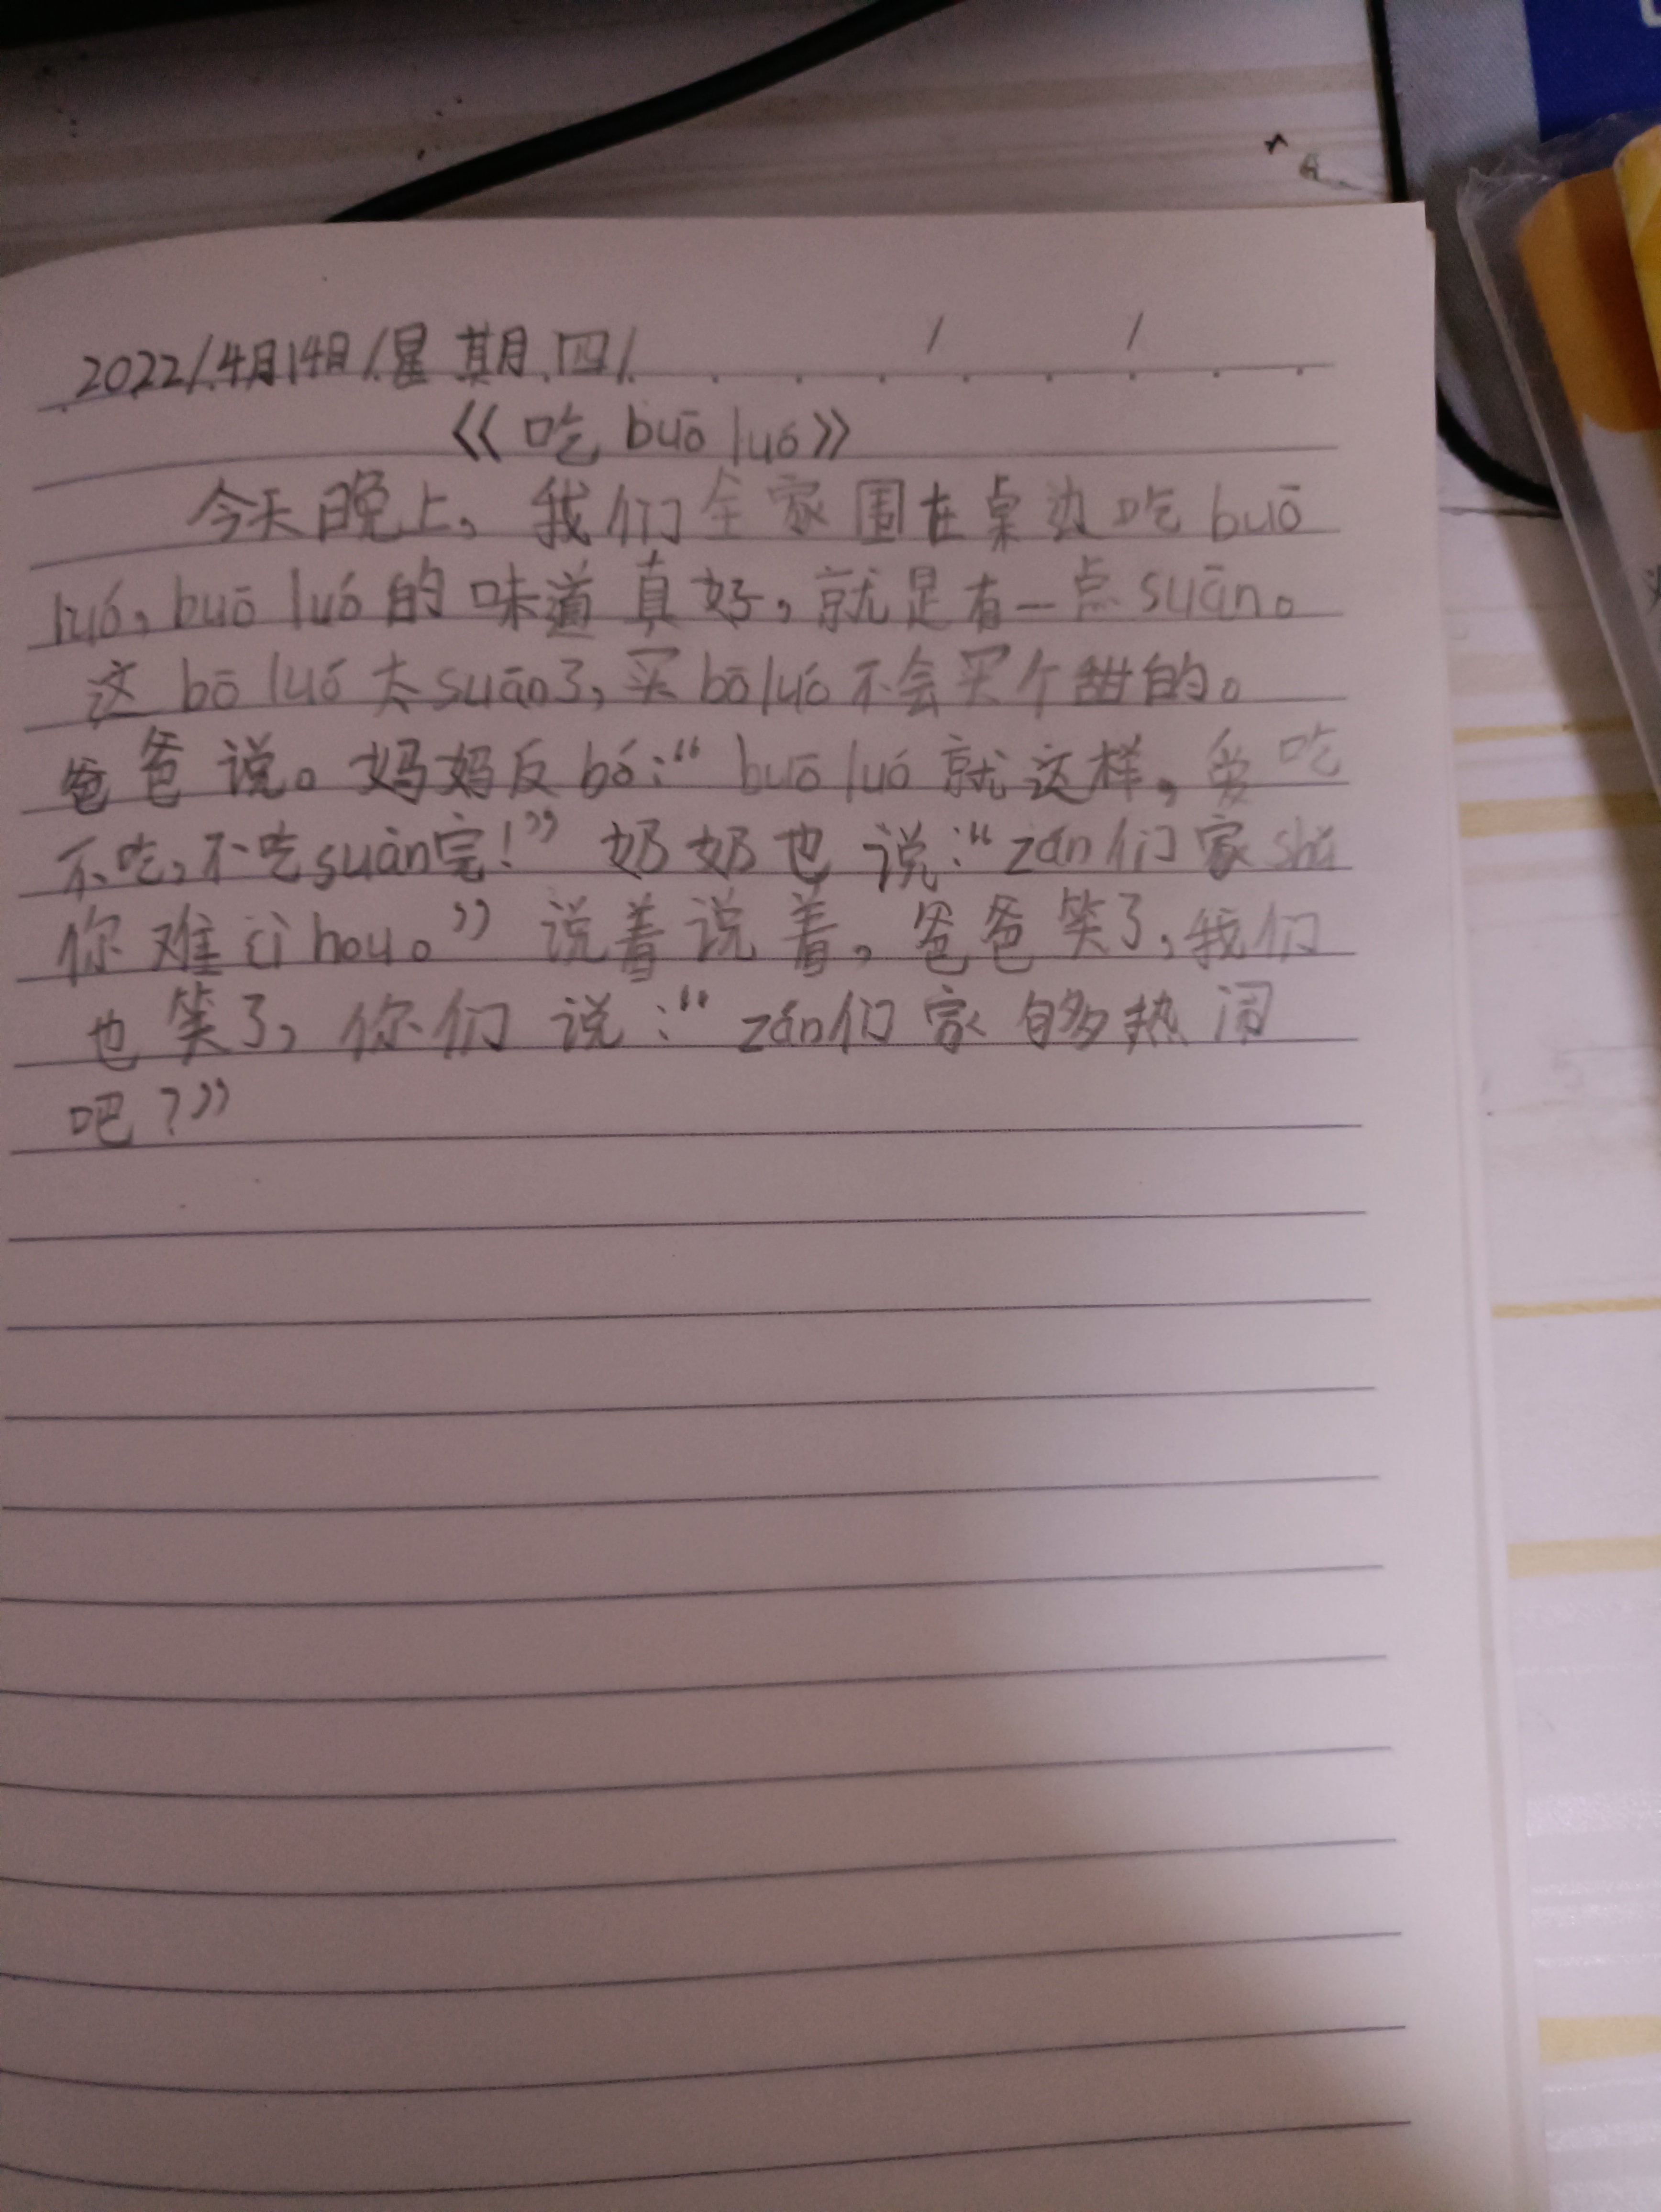 2022/4月14日/星期四/
《吃 buō luó》
今天晚上，我们全家围在桌边吃 buō
luó，buō luó 的味道真好，就是有一点 suān。
这 bō luó 太 suān 了，买 bō luó 不会买个甜的。
爸爸说。妈妈反 bó：“buō luó 就这样，爱吃
不吃，不吃 suàn 完！”奶奶也说：“zán 们家
你难 cì hou。”说着说着，爸爸笑了，我们
也笑了，你们说：“zán 们家够热闹
吧？”